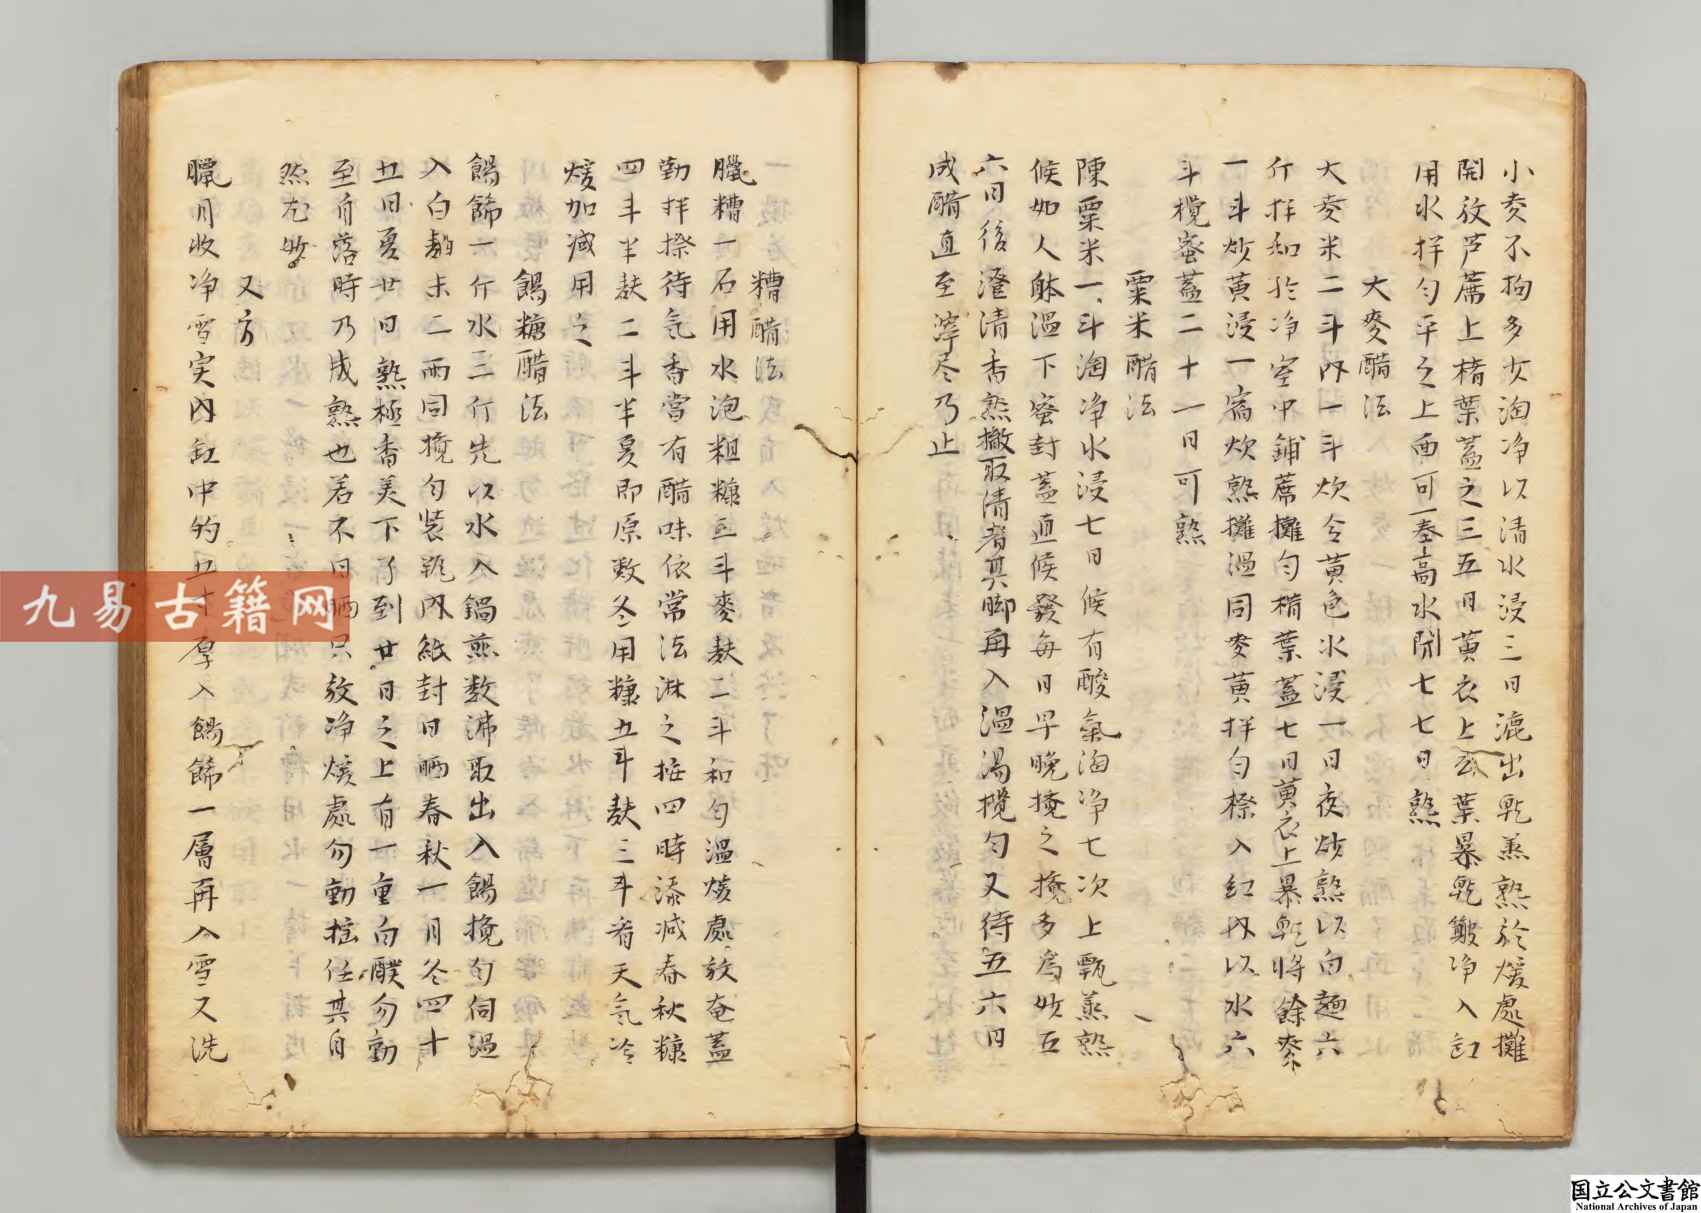 小麦不拘多少淘净以清水浸三日漉出乾蒸熟於煖處攤
開放芦蓆上楮葉蓋之三五日黄衣上去葉暴乾簸净入缸
用水拌匀平之上面可一拳高水閉七七日熟
大麥醋法
大麦米二斗内一斗炒令黄色水浸一日夜炊熟以白麺六
斤拌和於净室中鋪蓆攤匀楮葉蓋七日黄衣上暴乾將餘麥
一斗炒黄浸一宿炊熟攤温同麦黄拌匀榚入缸内以水六
斗攪蜜蓋二十一日可熟
粟米醋法
陳粟米一斗淘净水浸七日候有酸氣淘净七次上甑蒸熟
候如人躰温下蜜封蓋直候發每日早晚攪之攪多為妙五
六日後澄清香熟撇取清者其脚再入温湯攪匀又待五六日
成醋直至滓尽乃止
糟醋法
臘糟一石用水泡粗糠三斗麥麸二斗和匀温煖處放奄蓋
勤拌捺待気香當有醋味依常法淋之按四時添减春秋糠
四斗半麸二斗半夏即原数冬用糠五斗麸三斗看天気冷
煖加减用之
餳糖醋法
餳餙一斤水三斤先以水入鍋煎数沸取出入餳攪匀伺温
入白麹末二两同攪匀装瓶内紙封日晒春秋一月冬四十
五日夏廿日熟極香美下了到廿日之上有一重白醭勿動
至自落時乃成熟也若不日晒只放净煖處勿動揺任其自
然尤妙
又方
臘月收净雪実内缸中約五寸厚入餳餙一層再入雪又洗
九易古籍网
国立公文書館
National Archives of Japan